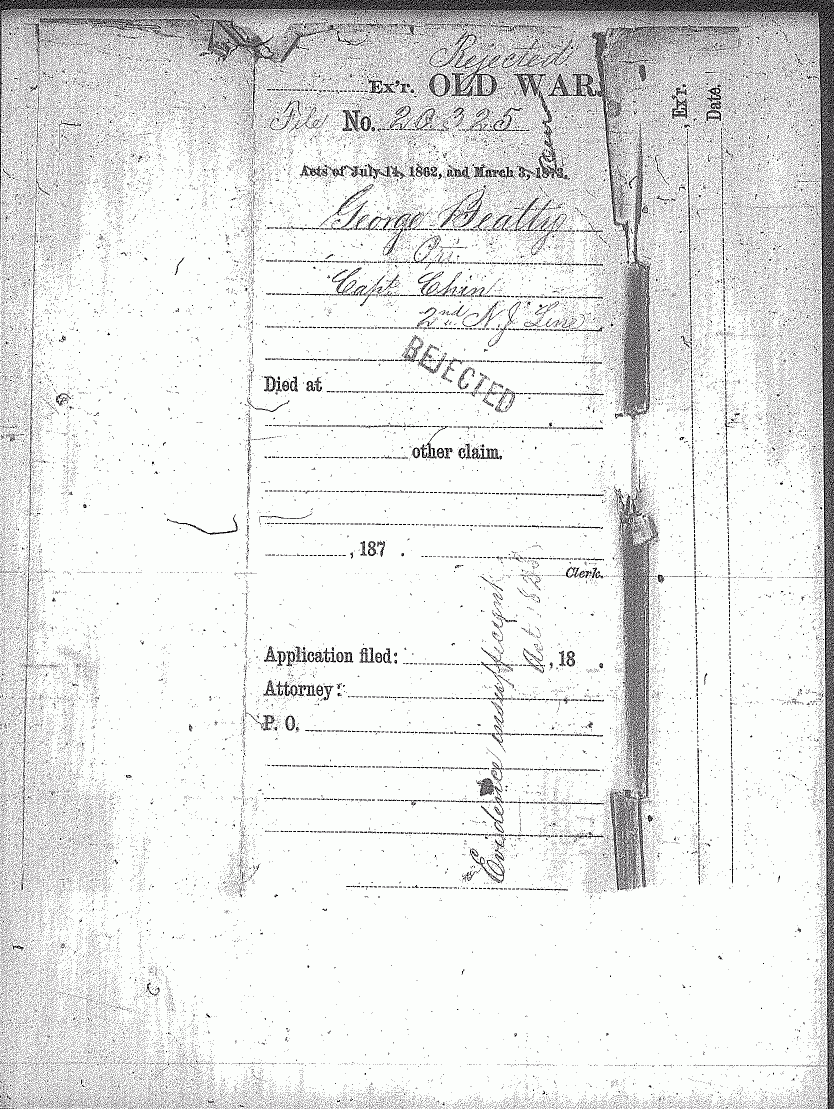 Rejected
Ex'r. OLD WAR.
File No. 20325
Acts of July 14, 1862, and March 3, 1873.
George Beatty
Pri.
Capt. Chin
2nd N.J. Line
REJECTED
Died at
other claim.
, 187 .
Clerk.
Application filed: , 18 .
Attorney:
P. O.
Evidence insufficient
Act 1828
Ex'r.
Date.